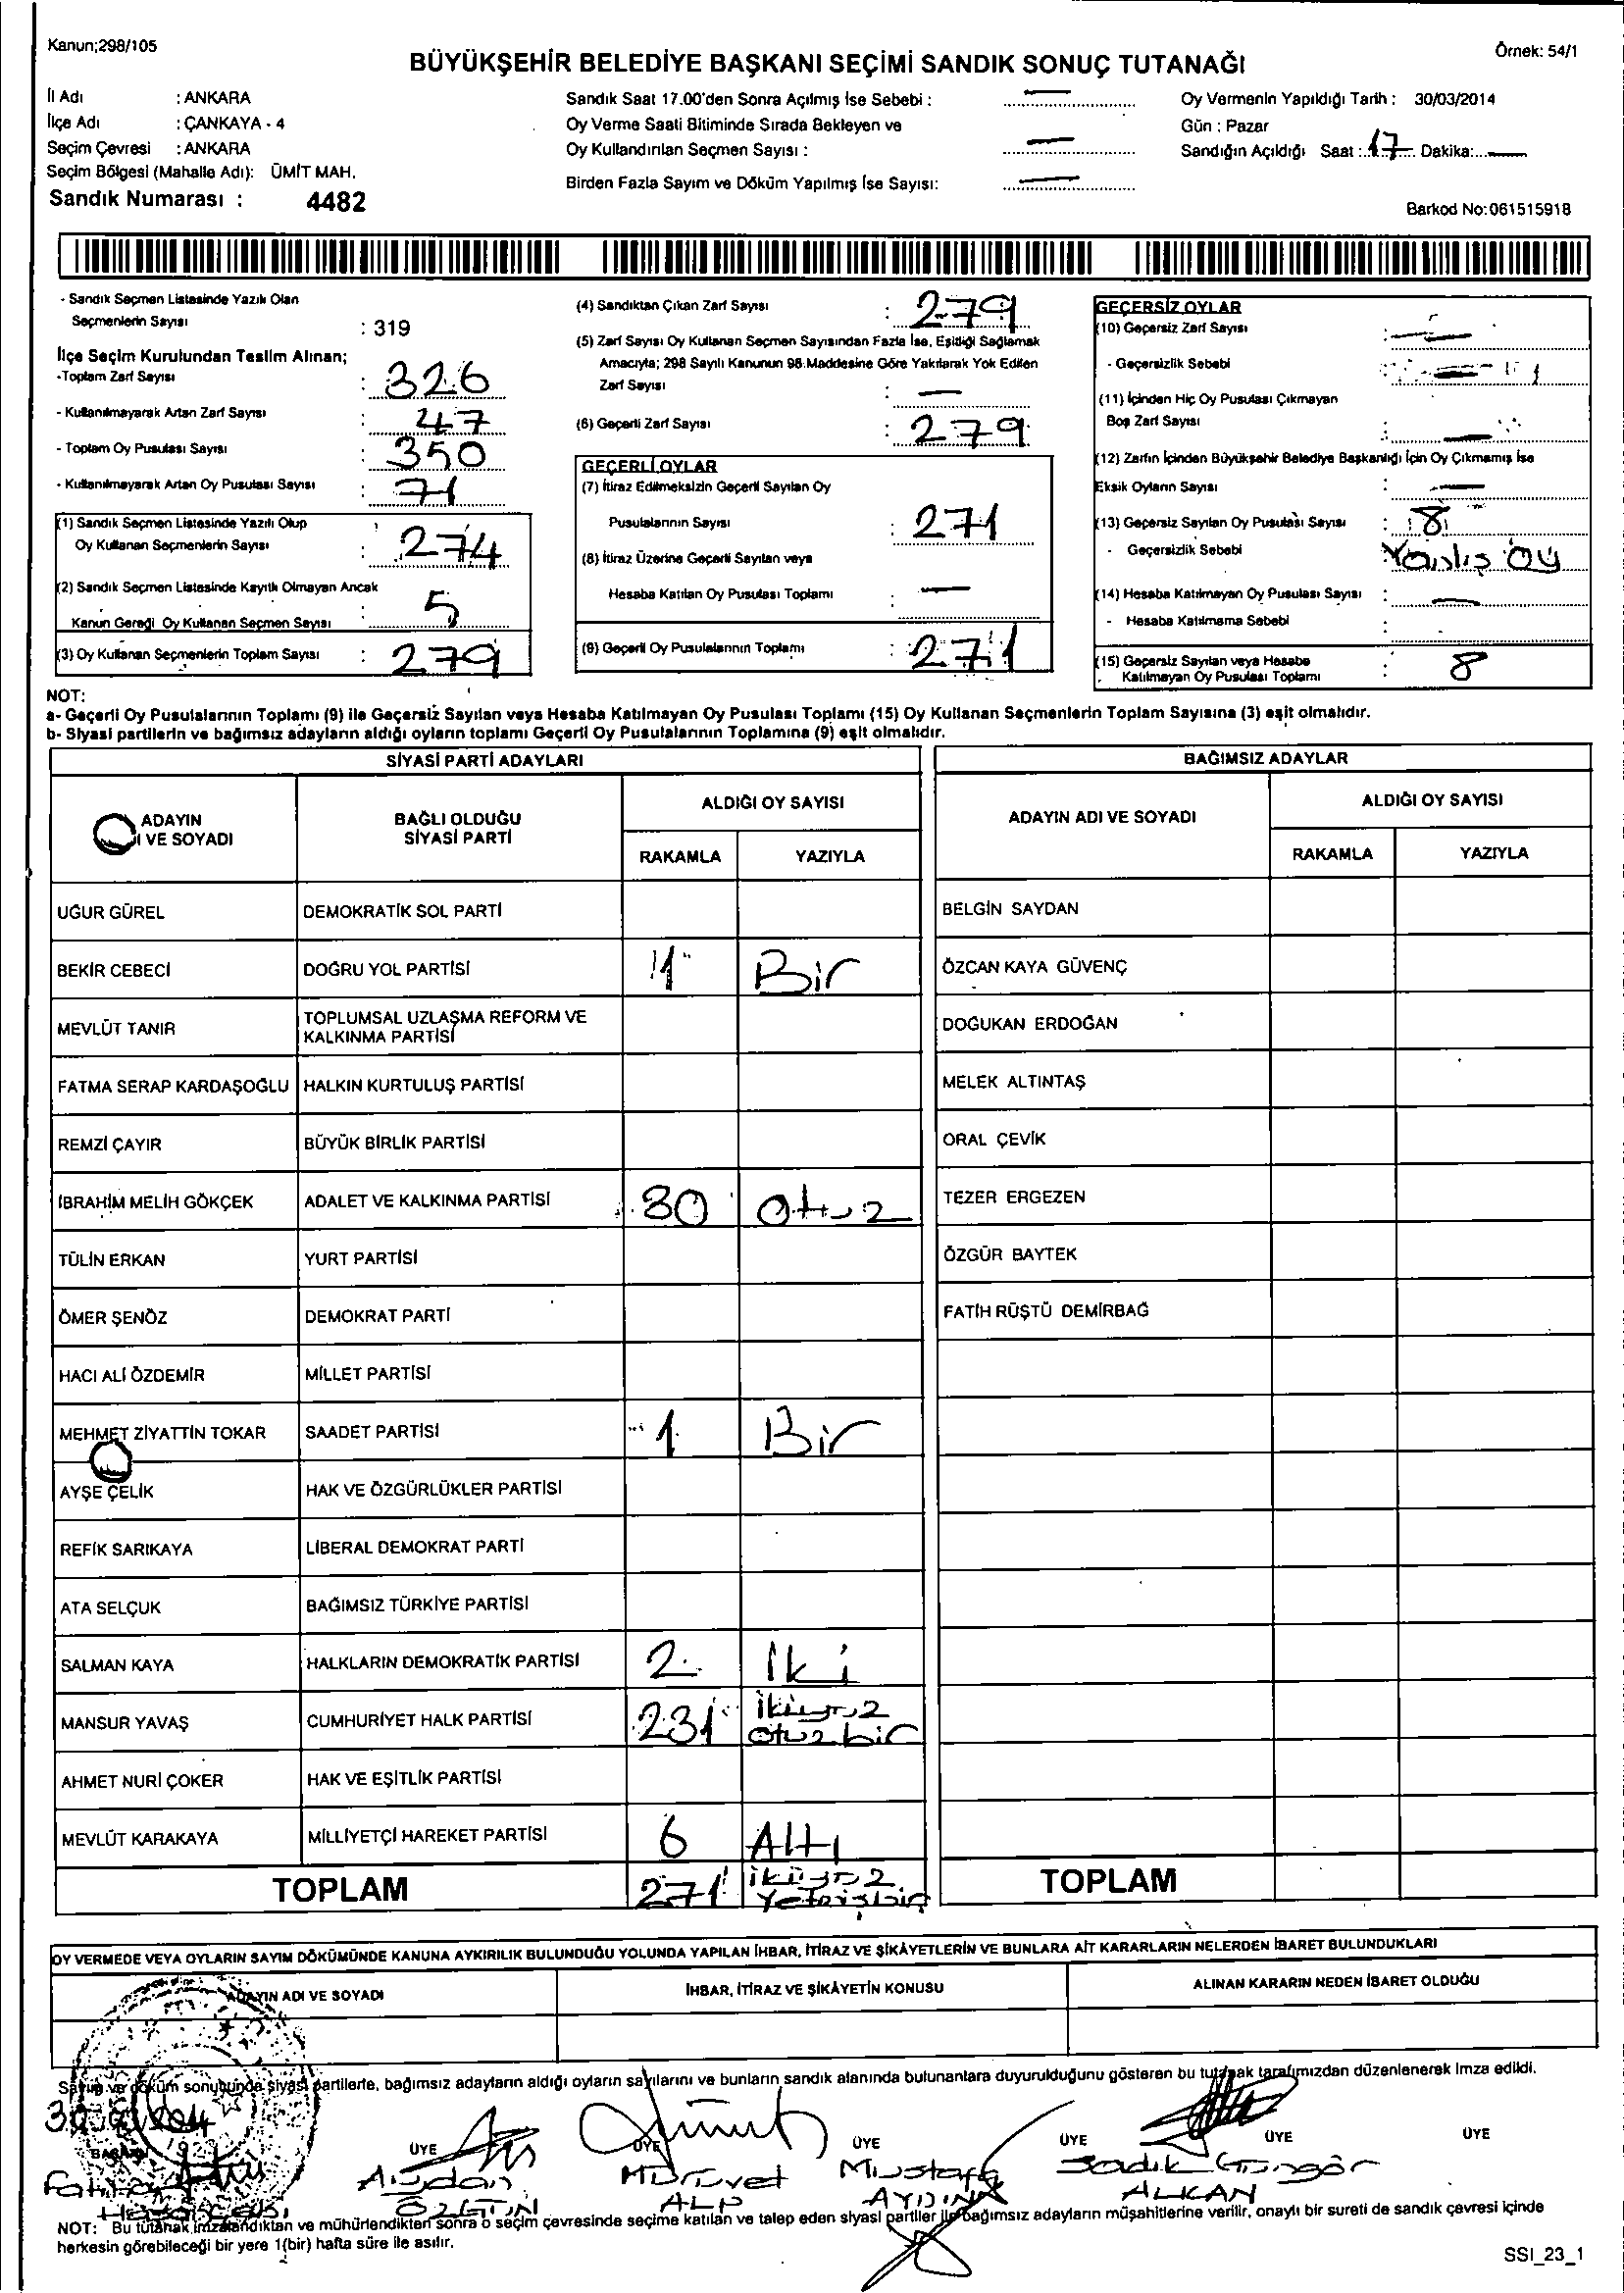 Kanun;298/105
Örnek: 54/1
BÜYÜKŞEHİR BELEDİYE BAŞKANI SEÇİMİ SANDIK SONUÇ TUTANAĞI
İl Adı : ANKARA
İlçe Adı : ÇANKAYA - 4
Seçim Çevresi : ANKARA
Seçim Bölgesi (Mahalle Adı): ÜMİT MAH.
Sandık Numarası : 4482
Sandık Saat 17.00'den Sonra Açılmış İse Sebebi : —
Oy Verme Saati Bitiminde Sırada Bekleyen ve
Oy Kullandırılan Seçmen Sayısı : —
Birden Fazla Sayım ve Döküm Yapılmış İse Sayısı: —
Oy Vermenin Yapıldığı Tarih : 30/03/2014
Gün : Pazar
Sandığın Açıldığı Saat :..17.... Dakika:...—
Barkod No:061515918
- Sandık Seçmen Listesinde Yazılı Olan
Seçmenlerin Sayısı : 319
İlçe Seçim Kurulundan Teslim Alınan;
-Toplam Zarf Sayısı : 326
- Kullanılmayarak Artan Zarf Sayısı : 47
- Toplam Oy Pusulası Sayısı : 350
- Kullanılmayarak Artan Oy Pusulası Sayısı : 71
(1) Sandık Seçmen Listesinde Yazılı Olup
Oy Kullanan Seçmenlerin Sayısı : 274
(2) Sandık Seçmen Listesinde Kayıtlı Olmayan Ancak
Kanun Gereği Oy Kullanan Seçmen Sayısı : 5
(3) Oy Kullanan Seçmenlerin Toplam Sayısı : 279
(4) Sandıktan Çıkan Zarf Sayısı : 279
(5) Zarf Sayısı Oy Kullanan Seçmen Sayısından Fazla İse, Eşitliği Sağlamak
Amacıyla; 298 Sayılı Kanunun 98.Maddesine Göre Yakılarak Yok Edilen
Zarf Sayısı : —
(6) Geçerli Zarf Sayısı : 279
GEÇERLİ OYLAR
(7) İtiraz Edilmeksizin Geçerli Sayılan Oy
Pusulalarının Sayısı : 271
(8) İtiraz Üzerine Geçerli Sayılan veya
Hesaba Katılan Oy Pusulası Toplamı : —
(9) Geçerli Oy Pusulalarının Toplamı : 271
GEÇERSİZ OYLAR
(10) Geçersiz Zarf Sayısı : —
- Geçersizlik Sebebi : —
(11) İçinden Hiç Oy Pusulası Çıkmayan
Boş Zarf Sayısı : —
(12) Zarfın İçinden Büyükşehir Belediye Başkanlığı İçin Oy Çıkmamış İse
Eksik Oyların Sayısı : —
(13) Geçersiz Sayılan Oy Pusulası Sayısı : 8
- Geçersizlik Sebebi Yanlış Oy
(14) Hesaba Katılmayan Oy Pusulası Sayısı : —
- Hesaba Katılmama Sebebi :
(15) Geçersiz Sayılan veya Hesaba
Katılmayan Oy Pusulası Toplamı : 8
NOT:
a- Geçerli Oy Pusulalarının Toplamı (9) ile Geçersiz Sayılan veya Hesaba Katılmayan Oy Pusulası Toplamı (15) Oy Kullanan Seçmenlerin Toplam Sayısına (3) eşit olmalıdır.
b- Siyasi partilerin ve bağımsız adayların aldığı oyların toplamı Geçerli Oy Pusulalarının Toplamına (9) eşit olmalıdır.
SİYASİ PARTİ ADAYLARI
ADAYIN
I VE SOYADI
BAĞLI OLDUĞU
SİYASİ PARTİ
ALDIĞI OY SAYISI
RAKAMLA YAZIYLA
UĞUR GÜREL DEMOKRATİK SOL PARTİ
BEKİR CEBECİ DOĞRU YOL PARTİSİ 1 Bir
MEVLÜT TANIR TOPLUMSAL UZLAŞMA REFORM VE
KALKINMA PARTİSİ
FATMA SERAP KARDAŞOĞLU HALKIN KURTULUŞ PARTİSİ
REMZİ ÇAYIR BÜYÜK BİRLİK PARTİSİ
İBRAHİM MELİH GÖKÇEK ADALET VE KALKINMA PARTİSİ 30 Otuz
TÜLİN ERKAN YURT PARTİSİ
ÖMER ŞENÖZ DEMOKRAT PARTİ
HACI ALİ ÖZDEMİR MİLLET PARTİSİ
MEHMET ZİYATTİN TOKAR SAADET PARTİSİ 1 Bir
AYŞE ÇELİK HAK VE ÖZGÜRLÜKLER PARTİSİ
REFİK SARIKAYA LİBERAL DEMOKRAT PARTİ
ATA SELÇUK BAĞIMSIZ TÜRKİYE PARTİSİ
SALMAN KAYA HALKLARIN DEMOKRATİK PARTİSİ 2 İki
MANSUR YAVAŞ CUMHURİYET HALK PARTİSİ 231 ikiyüz
otuzbir
AHMET NURİ ÇOKER HAK VE EŞİTLİK PARTİSİ
MEVLÜT KARAKAYA MİLLİYETÇİ HAREKET PARTİSİ 6 Altı
TOPLAM 271 ikiyüz
Yetmişbir
BAĞIMSIZ ADAYLAR
ADAYIN ADI VE SOYADI
ALDIĞI OY SAYISI
RAKAMLA YAZIYLA
BELGİN SAYDAN
ÖZCAN KAYA GÜVENÇ
DOĞUKAN ERDOĞAN
MELEK ALTINTAŞ
ORAL ÇEVİK
TEZER ERGEZEN
ÖZGÜR BAYTEK
FATİH RÜŞTÜ DEMİRBAĞ
TOPLAM
OY VERMEDE VEYA OYLARIN SAYIM DÖKÜMÜNDE KANUNA AYKIRILIK BULUNDUĞU YOLUNDA YAPILAN İHBAR, İTİRAZ VE ŞİKÂYETLERİN VE BUNLARA AİT KARARLARIN NELERDEN İBARET BULUNDUKLARI
ADAYIN ADI VE SOYADI
İHBAR, İTİRAZ VE ŞİKÂYETİN KONUSU
ALINAN KARARIN NEDEN İBARET OLDUĞU
Sayım ve döküm sonucunda siyasi partilerle, bağımsız adayların aldığı oyların sayılarını ve bunların sandık alanında bulunanlara duyurulduğunu gösteren bu tutanak tarafımızdan düzenlenerek imza edildi.
BAŞKAN ÜYE ÜYE ÜYE ÜYE ÜYE ÜYE
Aydan Mürüvet Mustafa Sadık Güngör
ÖZETİN ALP AYDIN ALKAN
NOT: Bu tutanak imzalandıktan ve mühürlendikten sonra o seçim çevresinde seçime katılan ve talep eden siyasi partiler ile bağımsız adayların müşahitlerine verilir, onaylı bir sureti de sandık çevresi içinde
herkesin görebileceği bir yere 1(bir) hafta süre ile asılır.
SSI_23_1